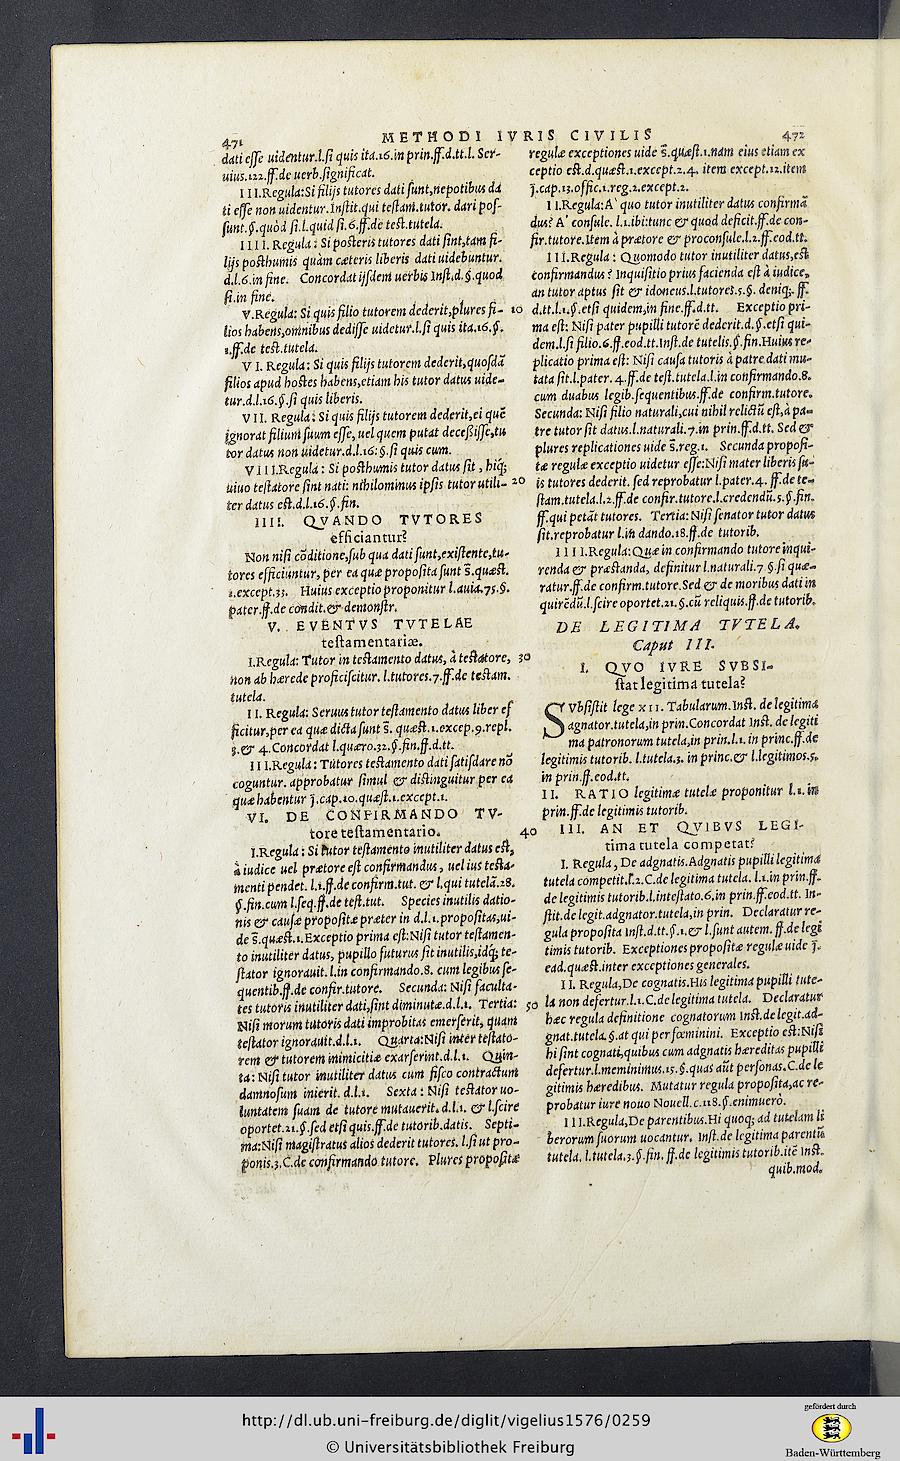 471
METHODI IVRIS CIVILIS
472
dati esse uidentur.l.si quis ita.16.in prin.ff.d.tt.l. Ser-
uius.122.ff.de uerb.significat.
III.Regula:Si filijs tutores dati sunt,nepotibus da
ti esse non uidentur.Instit.qui testam.tutor. dari pos-
sunt.§.quòd si.l.quid si.6.ff.de test.tutela.
IIII. Regula: Si posteris tutores dati sint,tam fi-
lijs posthumis quàm cæteris liberis dati uidebuntur.
d.l.6.in fine. Concordat ijsdem uerbis Inst.d.§.quod
si.in fine.
V.Regula: Si quis filio tutorem dederit,plures fi- 10
lios habens,omnibus dedisse uidetur.l.si quis ita.16.§.
1.ff.de test.tutela.
VI. Regula: Si quis filijs tutorem dederit,quosdã
filios apud hostes habens,etiam his tutor datus uide-
tur.d.l.16.§.si quis liberis.
VII. Regula: Si quis filijs tutorem dederit,ei quẽ
ignorat filium suum esse, uel quem putat decessisse,tu
tor datus non uidetur.d.l.16:§.si quis cum.
VIII.Regula: Si posthumis tutor datus sit, hiq́;
uiuo testatore sint nati: nihilominus ipsis tutor utili- 20
ter datus est.d.l.16.§.fin.
IIII. QVANDO TVTORES
efficiantur?
Non nisi cõditione,sub qua dati sunt,existente,tu-
tores efficiuntur, per ea quæ proposita sunt s̃.quæst.
1.except.33. Huius exceptio proponitur l.auia.75.§.
pater.ff.de condit.& demonstr.
V. EVENTVS TVTELAE
testamentariæ.
I.Regula: Tutor in testamento datus, à testatore, 30
non ab hærede proficiscitur. l.tutores.7.ff.de testam.
tutela.
II. Regula: Seruus tutor testamento datus liber ef
ficitur,per ea quæ dicta sunt s̃. quæst.1.excep.9.repl.
3.& 4.Concordat l.quæro.32.§.fin.ff.d.tt.
III.Regula: Tutores testamento dati satisdare nõ
coguntur. approbatur simul & distinguitur per ea
quæ habentur j̃.cap.10.quæst.1.except.1.
VI. DE CONFIRMANDO TV-
tore testamentario. 40
I.Regula: Si tutor testamento inutiliter datus est,
à iudice uel prætore est confirmandus, uel ius testa-
menti pendet. l.1.ff.de confirm.tut. & l.qui tutelã.28.
§.fin.cum l.seq.ff.de test.tut. Species inutilis datio-
nis & causæ propositæ præter in d.l.1.propositas,ui-
de s̃.quæst.1.Exceptio prima est:Nisi tutor testamen-
to inutiliter datus, pupillo futurus sit inutilis,idq́; te-
stator ignorauit.l.in confirmando.8. cum legibus se-
quentib.ff.de confir.tutore. Secunda: Nisi faculta-
tes tutoris inutiliter dati,sint diminutæ.d.l.1. Tertia: 50
Nisi morum tutoris dati improbitas emerserit, quam
testator ignorauit.d.l.1. Quarta:Nisi inter testato-
rem & tutorem inimicitiæ exarserint.d.l.1. Quin-
ta: Nisi tutor inutiliter datus cum fisco contractum
damnosum inierit. d.l.1. Sexta: Nisi testator uo-
luntatem suam de tutore mutauerit. d.l.1. & l.scire
oportet.21.§.sed etsi quis.ff.de tutorib.datis. Septi-
ma:Nisi magistratus alios dederit tutores. l.si ut pro-
ponis.3.C.de confirmando tutore. Plures propositæ
regulæ exceptiones uide s̃.quæst.1.nam eius etiam ex
ceptio est.d.quæst.1.except.2.4. item except.12.item
j̃.cap.13.offic.1.reg.2.except.2.
II.Regula:A' quo tutor inutiliter datus confirmã
dus? A' consule. l.1.ibi:tunc & quod deficit.ff.de con-
fir.tutore.Item à prætore & proconsule.l.2.ff.eod.tt.
III.Regula: Quomodo tutor inutiliter datus,est
confirmandus? Inquisitio prius facienda est à iudice,
an tutor aptus sit & idoneus.l.tutores.5.§. deniq;. ff.
d.tt.l.1.§.etsi quidem,in fine.ff.d.tt. Exceptio pri-
ma est: Nisi pater pupilli tutorẽ dederit.d.§.etsi qui-
dem.l.si filio.6.ff.eod.tt.Inst.de tutelis.§.fin.Huius re-
plicatio prima est: Nisi causa tutoris à patre dati mu-
tata sit.l.pater. 4.ff.de test.tutela.l.in confirmando.8.
cum duabus legib.sequentibus.ff.de confirm.tutore.
Secunda: Nisi filio naturali,cui nihil relictũ est,à pa-
tre tutor sit datus.l.naturali.7.in prin.ff.d.tt. Sed &
plures replicationes uide s̃.reg.1. Secunda proposi-
tæ regulæ exceptio uidetur esse:Nisi mater liberis su-
is tutores dederit. sed reprobatur l.pater.4. ff.de te-
stam.tutela.l.2.ff.de confir.tutore.l.credendũ.5.§.fin.
ff.qui petãt tutores. Tertia: Nisi senator tutor datus
sit.reprobatur l.in dando.18.ff.de tutorib.
IIII.Regula:Quæ in confirmando tutore inqui-
renda & præstanda, definitur l.naturali.7.§.si quæ-
ratur.ff.de confirm.tutore.Sed & de moribus dati in
quirẽdũ.l.scire oportet.21.§.cũ reliquis.ff.de tutorib.
DE LEGITIMA TVTELA.
Caput III.
I. QVO IVRE SVBSI-
stat legitima tutela?
SVbsistit lege XII. Tabularum.Inst. de legitima
agnator.tutela,in prin.Concordat Inst. de legiti
ma patronorum tutela,in prin.l.1. in princ.ff.de
legitimis tutorib. l.tutela.3. in princ.& l.legitimos.5.
in prin.ff.eod.tt.
II. RATIO legitimæ tutelæ proponitur l.1.in
prin.ff.de legitimis tutorib.
III. AN ET QVIBVS LEGI-
tima tutela competat?
I. Regula, De adgnatis.Adgnatis pupilli legitima
tutela competit.l.2.C.de legitima tutela. l.1.in prin.ff.
de legitimis tutorib.l.intestato.6.in prin.ff.eod.tt. In-
stit.de legit.adgnator.tutela,in prin. Declaratur re-
gula proposita Inst.d.tt.§.1.& l.sunt autem. ff.de legi
timis tutorib. Exceptiones propositæ regulæ uide j̃.
ead.quæst.inter exceptiones generales.
II. Regula,De cognatis.His legitima pupilli tute-
la non defertur.l.1.C.de legitima tutela. Declaratur
hæc regula definitione cognatorum Inst.de legit.ad-
gnat.tutela.§.at qui per fœminini. Exceptio est:Nisi
hi sint cognati,quibus cum adgnatis hæreditas pupilli
defertur.l.meminimus.15.§.quas aũt personas.C.de le
gitimis hæredibus. Mutatur regula proposita,ac re-
probatur iure nouo Nouell.c.118.§.enimuerò.
III.Regula,De parentibus.Hi quoq; ad tutelam li
berorum suorum uocantur. Inst.de legitima parentũ
tutela. l.tutela.3.§.fin. ff.de legitimis tutorib.itẽ Inst.
quib.mod.
http://dl.ub.uni-freiburg.de/diglit/vigelius1576/0259
© Universitätsbibliothek Freiburg
gefördert durch
Baden-Württemberg